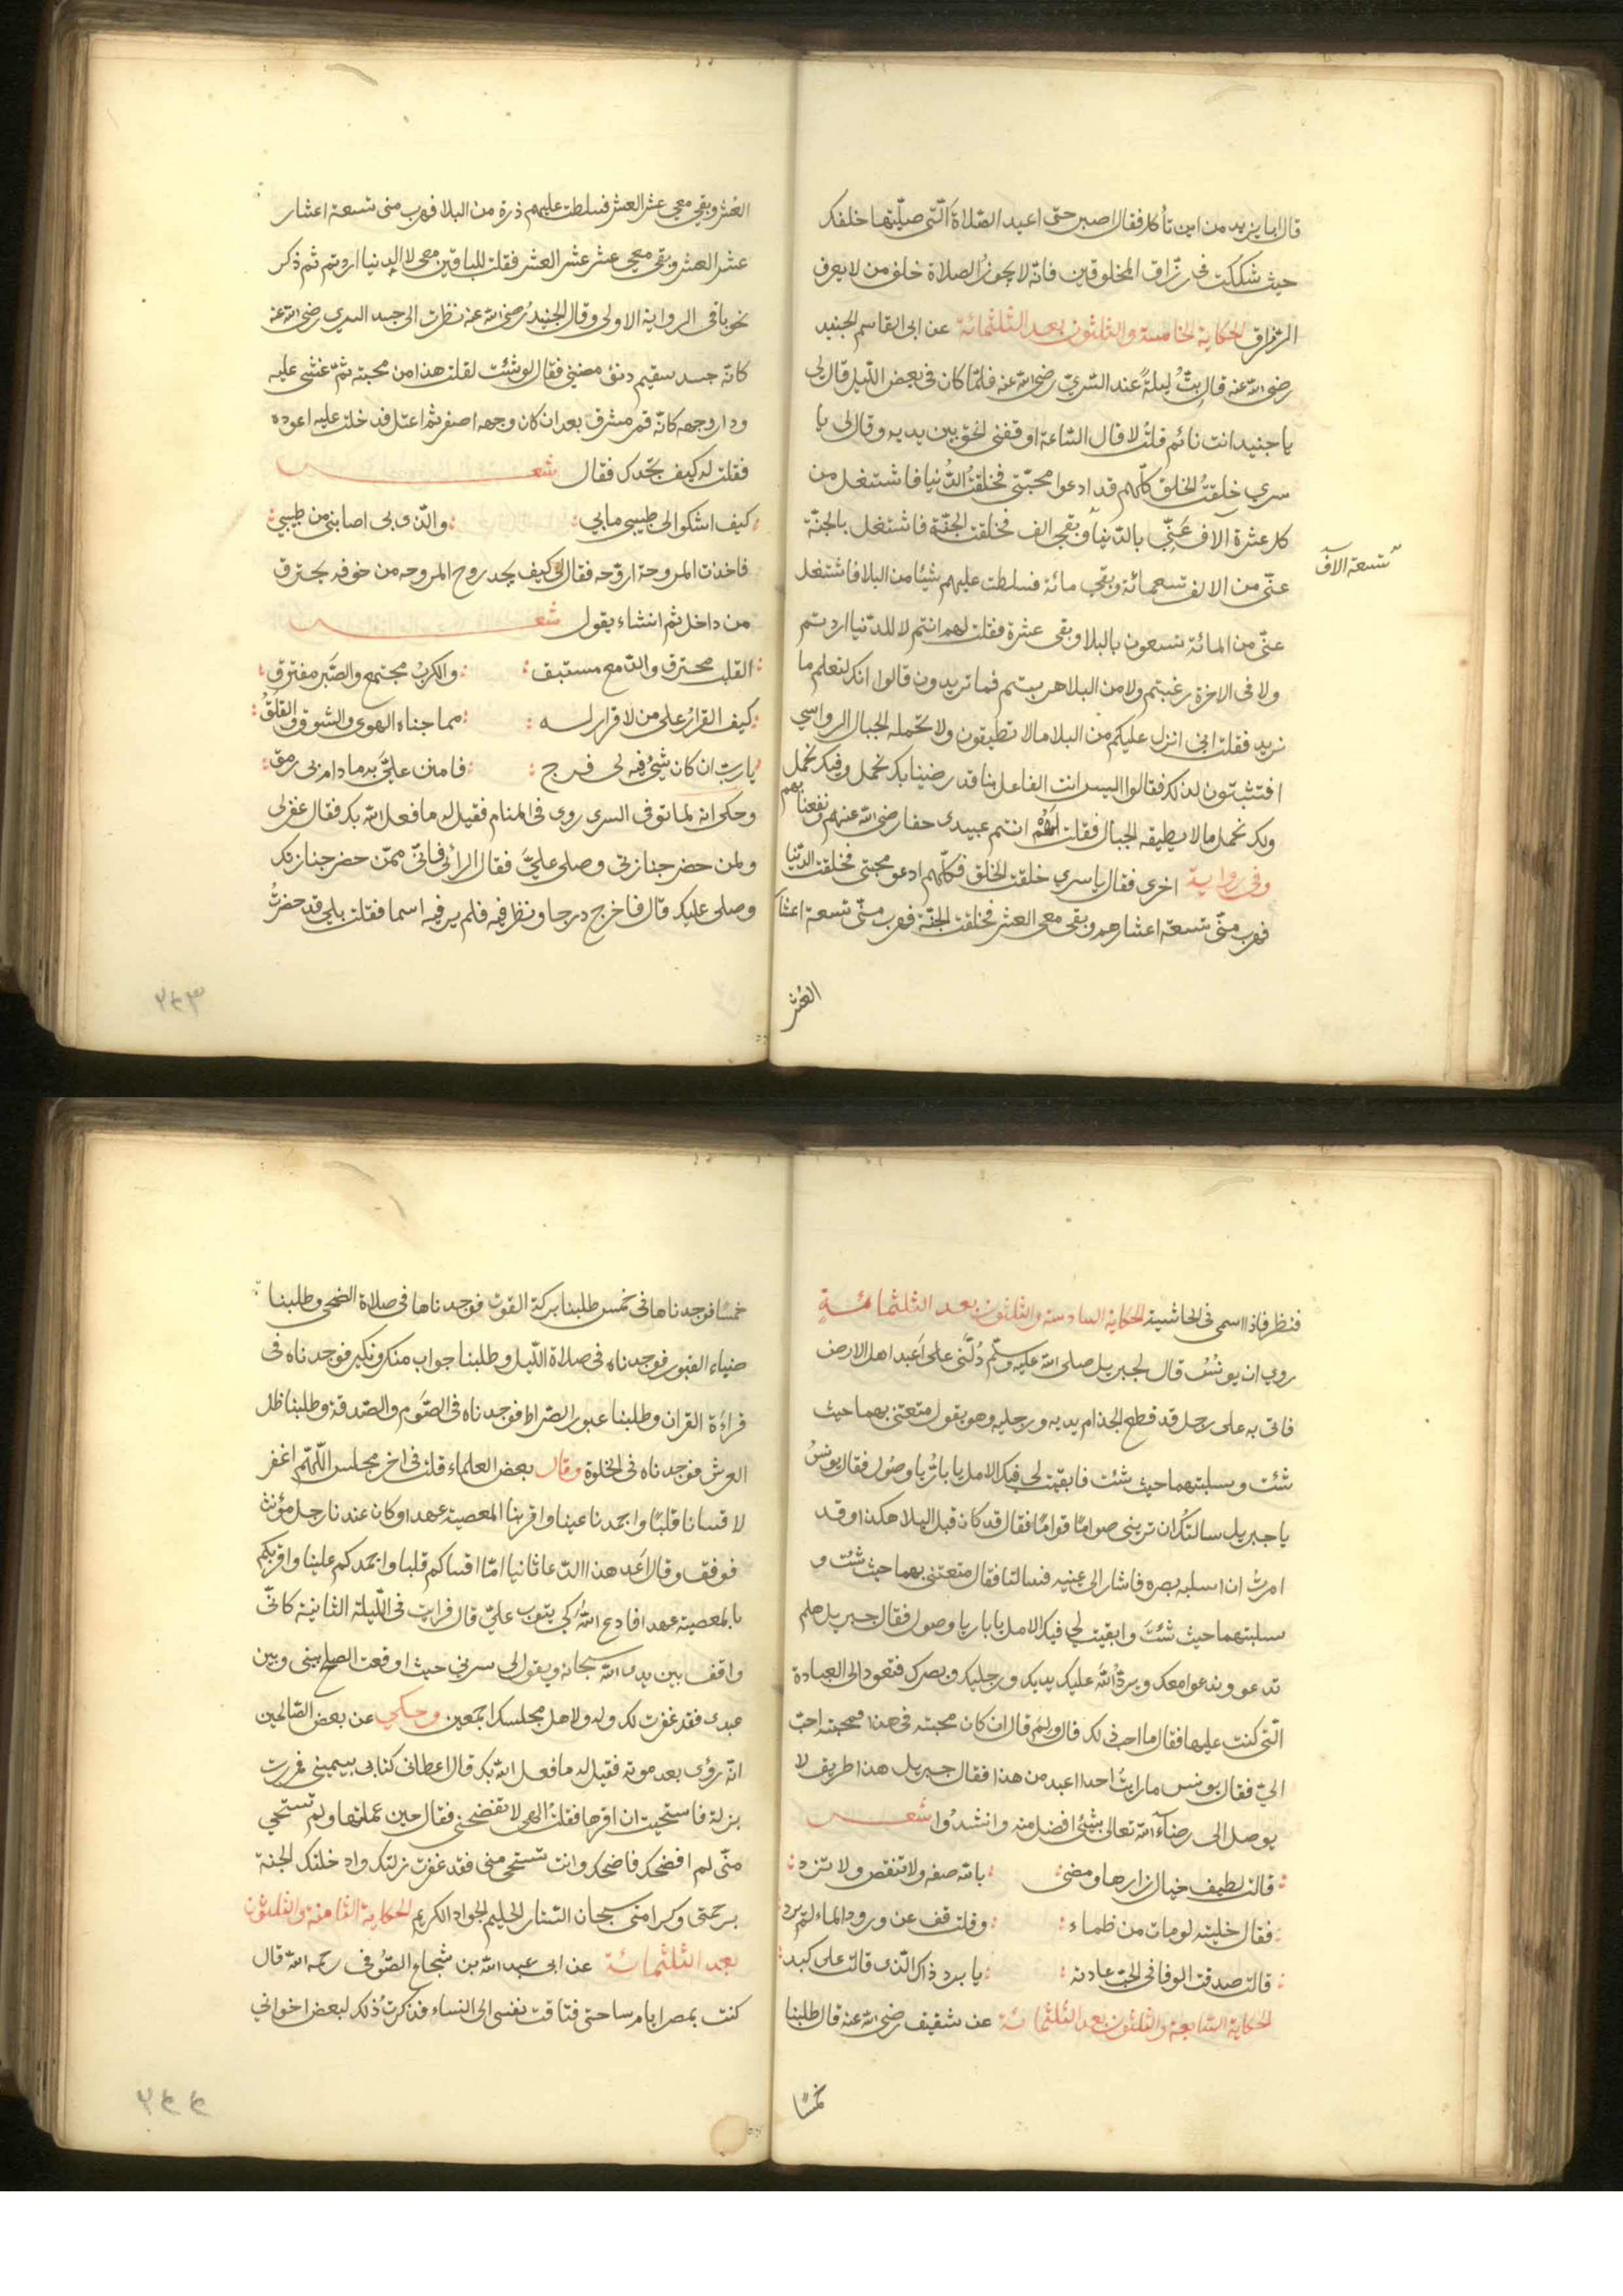 قال ابا يزيد من اين تأكل فقال اصبر حتى اعيد الصّلاة الّتى صلّيتها خلفك
حيث شككت فى رزّاق المخلوقين فانّه لا يجوز الصلاة خلف من لا يعرف
الرزّاق الحكاية الخامسة والثلثون بعد الثلثمائة عن ابى القاسم الجنيد
رضى الله عنه قال بتُّ ليلةً عند السّريّ رضى الله عنه فلمّا كان فى بعض اللّيل قال لى
يا جنيد انت نائم قلت لا قال السّاعة اوقفنى الحق بين يديه وقال لى يا
سري خلقتُ الخلق كلّهم قد ادعوا محبّتى فخلقت الدُّنيا فاشتغل من
كل عشرة آلاف عَنّي بالدّنيا وبقى الف فخلقت الجنّة فاشتغل بالجنّة
تسعة الاف
عنّى من الالف تسعمائة وبقى مائة فسلطت عليهم شيئا من البلا فاشتغل
عنّى من المائة تسعون بالبلا وبقى عشرة فقلت لهم انتم لا للدّنيا اردتم
ولا فى الاخرة رغبتم ولا من البلا هربتم فما تريدون قالوا انك لتعلم ما
نريد فقلت انى انزل عليكم من البلا مالا تطيقون ولا تحمله الجبال الرواسي
افتثبتون لذلك فقالوا اليس انت الفاعل بنا قد رضينا بك نحمل وفيك نحمل
ولك نحمل مالا يطيقه الجبال فقلت لهم انتم عبيدى حقا رضى الله عنهم ونفعنا بهم
وفى رواية اخرى فقال يا سري خلقت الخلق فكلّهم ادعو محبتى فخلقت الدّنيا
فهرب منّى تسعة اعشارهم وبقى معى العشر فخلقت الجنّة فهرب منّى تسعة اعشار
العُشر
العُشر وبقى معى عشر العشر فسلطت عليهم ذرة من البلا فهرب منى تسعة اعشار
عشر العشر وبقى معى عشر عشر العشر فقلت للباقين معى لا الدنيا اردتم ثم ذكر
نحو باقى الرواية الاولى وقال الجنيدُ رضى الله عنه نظرت الى جسد السري رضى الله عنه
كانّه جسد سقيم دنف مضنى فقال لو شئت لقلت هذا من محبته ثمّ غشى عليه
ودار وجهه كانّه قمر مشرق بعد ان كان وجهه اصفر ثم اعتل فدخلت عليه اعوده
فقلت له كيف تجدك فقال شعـــر
كيف اشكوا الى طبيبى مابى: والّذى بى اصابنى من طبيبى:
فاخذت المروحة اروّحه فقال لى كيف يجد روح المروحه من خوفه يحترق
من داخل ثم انشاء يقول شعـــر
القلب محترق والدّمع مستبق: والكربُ مجتمع والصّبر مفترق:
كيف القرارُ على من لا قرار لــه: مما جناه الهوى والشوق والقلقُ:
يا ربّ ان كان شيءٌ فيه لى فرج: فامنن عليَّ به ما دام بى رمق:
وحكى انه لما توفى السرى روى فى المنام فقيل له ما فعل الله بك فقال غفر لى
ولمن حضر جنازتى وصلى عليّ فقال الرائى فانّى ممّن حضر جنازتك
وصلى عليك قال فاخرج درجا ونظر فيه فلم ير فيه اسما فقلت بلى قد حضرتُ
٢٤٣
فنظر فاذا اسمى فى الحاشية الحكاية السادسة والثلثون بعد الثلثمائةٍ
روى ان يونُسُ قال لجبريل صلى الله عليه وسلّم دُلّنى على اَعبد اهل الارض
فاتى به على رجل قد قطع الجذام يديه ورجليه وهو يقول متعتنى بهما حيث
شئت وسلبتهما حيث شئت فابقيت لى فيك الامل يا بارُّ يا وصُول فقال يونسُ
يا جبريل سالتك ان ترينى صوامًا قوامًا فقال قد كان قبل البلا هكذا وقد
امرتُ ان اسلبه بصره فاشار الى عينيه فسالتا فقال متعتنى بهما حيث شئت و
سلبتهما حيث شئتَ وابقيت لى فيك الامل يا بار يا وصول فقال جبريل هلم
تدعو وندعوا معك ويردُّ اللهُ عليك يديك ورجليك وبصرك فتعود الى العبادة
الّتى كنت عليها فقال ما احب ذلك قال ولِمَ قال ان كان محبته فى هذا فمحبته احبّ
اليّ فقال يونس ما رايتُ احدا اعبد من هذا فقال جبريل هذا طريق لا
يوصل الى رضاء الله تعالى بشئ افضل منه وانشدُوا شعـــر
قالت لطيف خيال زارها ومضى: بالله صفه ولا تنقص ولا تزد:
فقال خليته لو مات من ظماء: وقلت قف عن ورود الماء لم يرد:
قالت صدقت الوفا فى الحبّ عادته: يا برد ذاك الّذى قالت على كبد:
الحكاية السّابعة والثلثون بعد الثلثمائة عن شقيق رضى الله عنه قال طلبنا
خمسًا
خمسًا فوجدناها فى خمس طلبنا بركة القوت فوجدناها فى صلاة الضحى وطلبنا
ضياء القبور فوجدناه فى صلاة اللّيل وطلبنا جواب منكر ونكير فوجدناه فى
قراءة القران وطلبنا عبور الصّراط فوجدناه فى الصّوم والصّدقة وطلبنا ظل
العرش فوجدناه فى الخلوة وقال بعض العلماء قلت فى اخر مجلس اللّهمّ اغفر
لاقسانا قلبًا واجمدنا عينا واقربنا المعصية عهدا وكان عندنا رجل مؤنث
فوقف وقال اَعد هذا الدّعا ثانيا انّا اقساكم قلبا واجمدكم علينا واقربكم
بالمعصية عهدا فادع اللهَ كى يتوب علىّ قال فرايت فى اللّيلة الثانية كانّى
واقف بين يدى الله سبحانه ويقول لى سرنى حيث اوقعت الصلح بينى وبين
عبدى فقد غفرت لك وله ولاهل مجلسك اجمعين وحكى عن بعض الصّالحين
انّه رؤى بعد موته فقيل له ما فعل الله بك قال اعطانى كتابى بيمينى فمررت
بزلة فاستحييت ان اقرها فقلتُ الهى لا تفضحنى فقال حين عملتها ولم تستحى
منّى لم افضحك فاضحك وانت تستحى منى فقد غفرت زلتك وادخلتك الجنة
برحمتى وكرامتى سبحان السّتار الحليم الجواد الكريم الحكاية الثامنة والثلثون
بعد الثلثمائة عن ابى عبد الله بن شجاع الصّوفى رحمه الله قال
كنت بمصر ايام ساحتى فتاقت نفسى الى النساء فذكرتُ ذلك لبعض اخوانى
٢٤٤